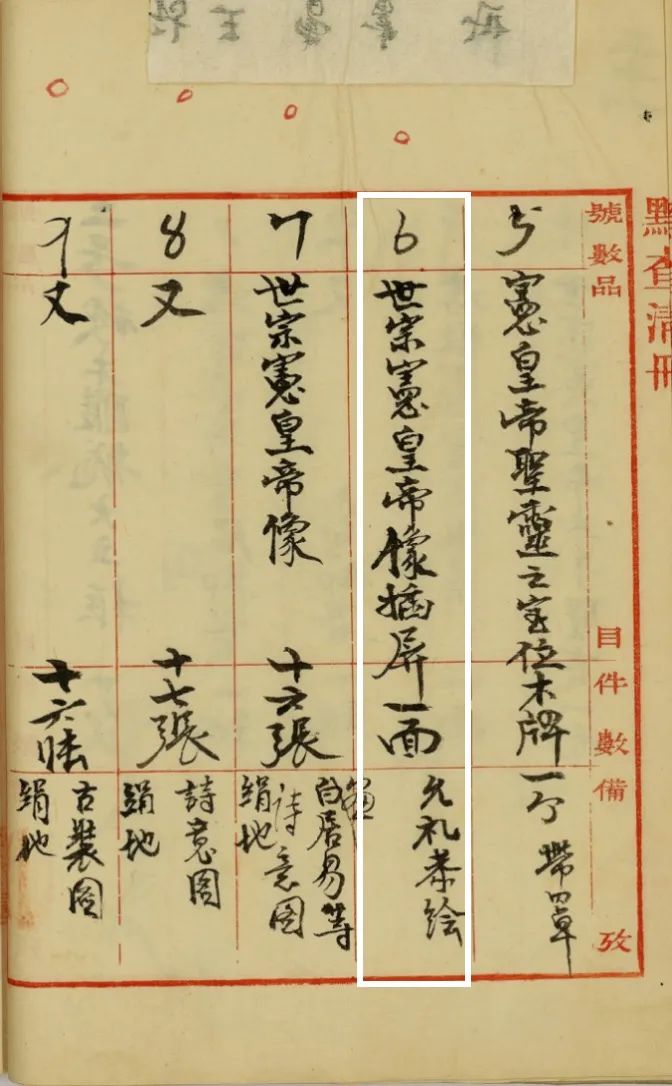 點查清冊
號數
品目
件數
備攷
5
憲皇帝聖靈之宝位木牌
一个
帶罩
6
世宗憲皇帝像插屏
一面
允礼恭绘
7
世宗憲皇帝像
十六張
白居易等
诗意图
絹地
8
又
十七張
詩意图
絹地
9
又
十六張
古裝图
絹地